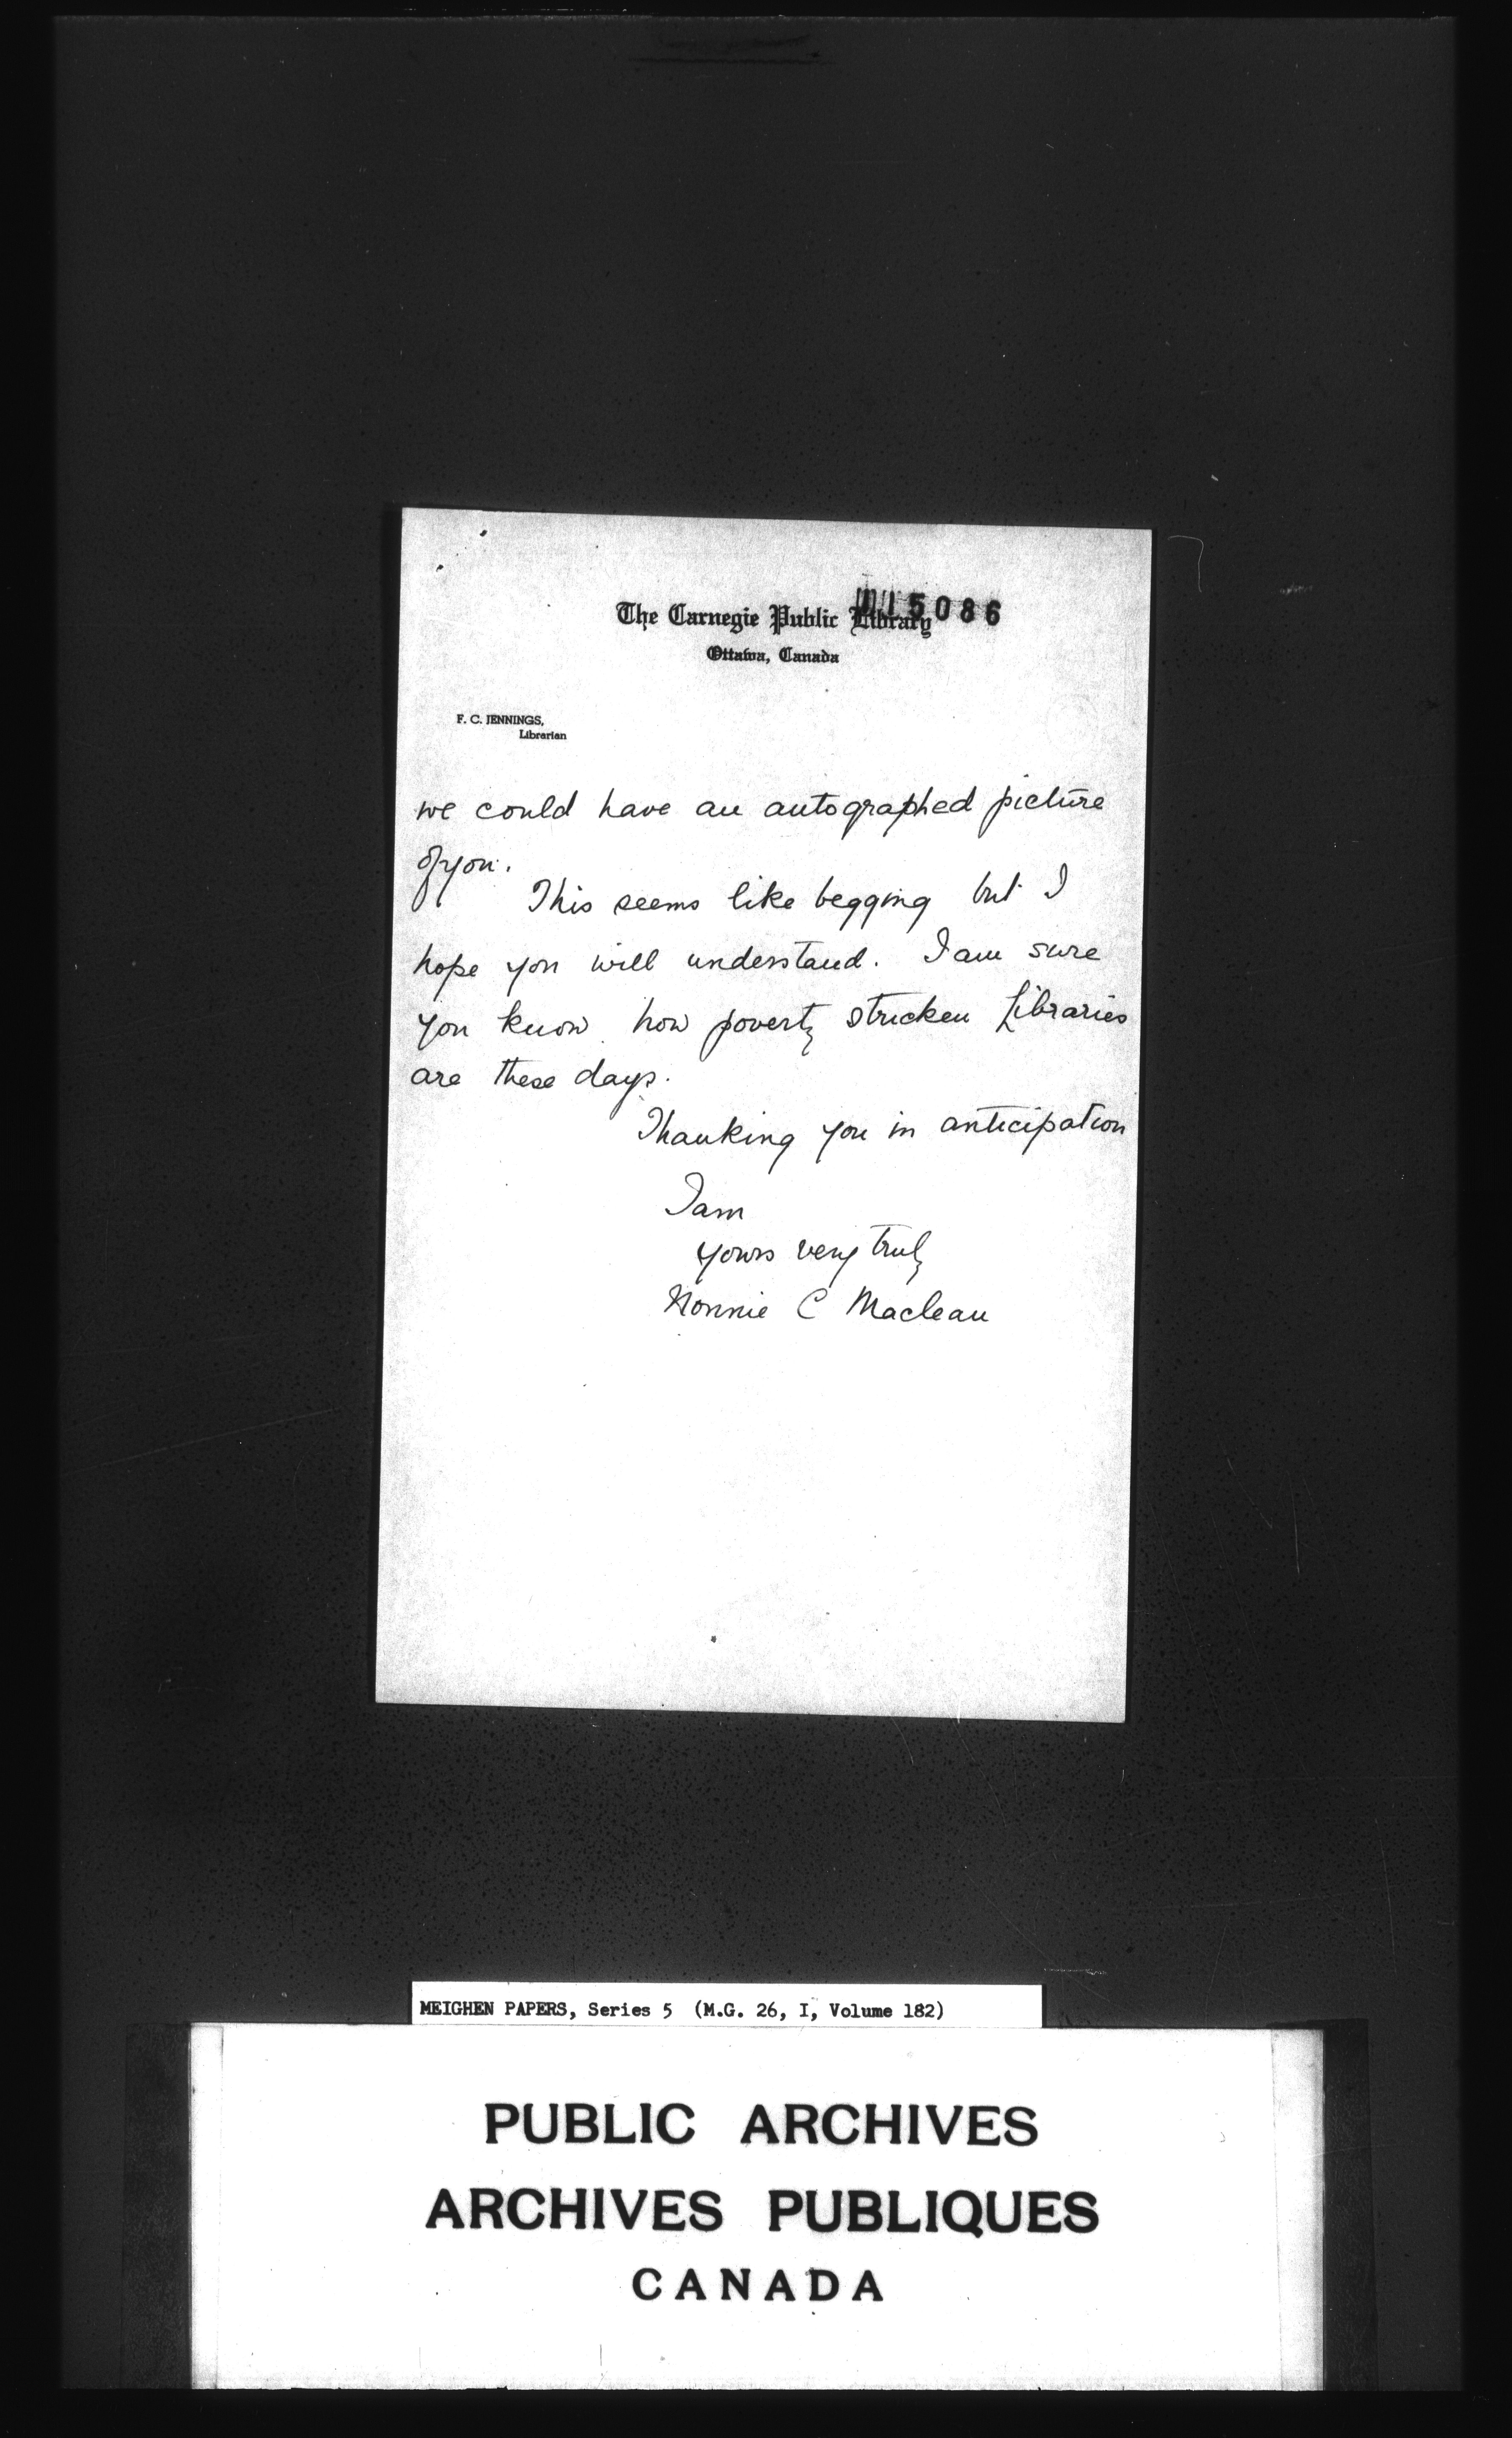 15086
The Carnegie Public Library
Ottawa, Canada
F. C. JENNINGS,
Librarian
we could have an autographed picture
of you.
This seems like begging but I
hope you will understand. I am sure
you know how poverty stricken Libraries
are these days.
Thanking you in anticipation
I am
Yours very truly
Nonnie C Maclean
MEIGHEN PAPERS, Series 5 (M.G. 26, I, Volume 182)
PUBLIC ARCHIVES
ARCHIVES PUBLIQUES
CANADA